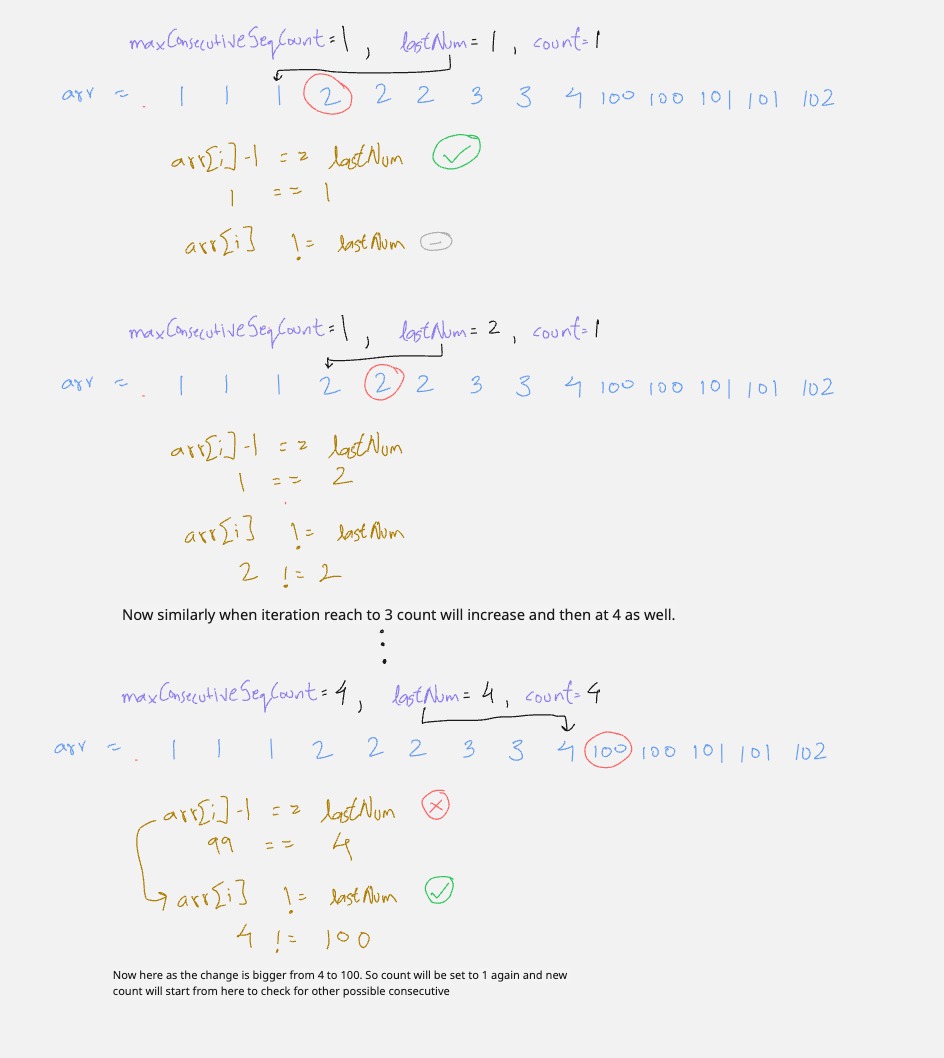 maxConsecutiveSeqCount = 1 , lastNum = 1 , count = 1
arr = 1 1 1 2 2 2 3 3 4 100 100 101 101 102
arr[i] - 1 == lastNum
1 == 1
arr[i] != lastNum
maxConsecutiveSeqCount = 1 , lastNum = 2 , count = 1
arr = 1 1 1 2 2 2 3 3 4 100 100 101 101 102
arr[i] - 1 == lastNum
1 == 2
arr[i] != lastNum
2 != 2
Now similarly when iteration reach to 3 count will increase and then at 4 as well.
maxConsecutiveSeqCount = 4 , lastNum = 4 , count = 4
arr = 1 1 1 2 2 2 3 3 4 100 100 101 101 102
arr[i] - 1 == lastNum
99 == 4
arr[i] != lastNum
4 != 100
Now here as the change is bigger from 4 to 100. So count will be set to 1 again and new
count will start from here to check for other possible consecutive